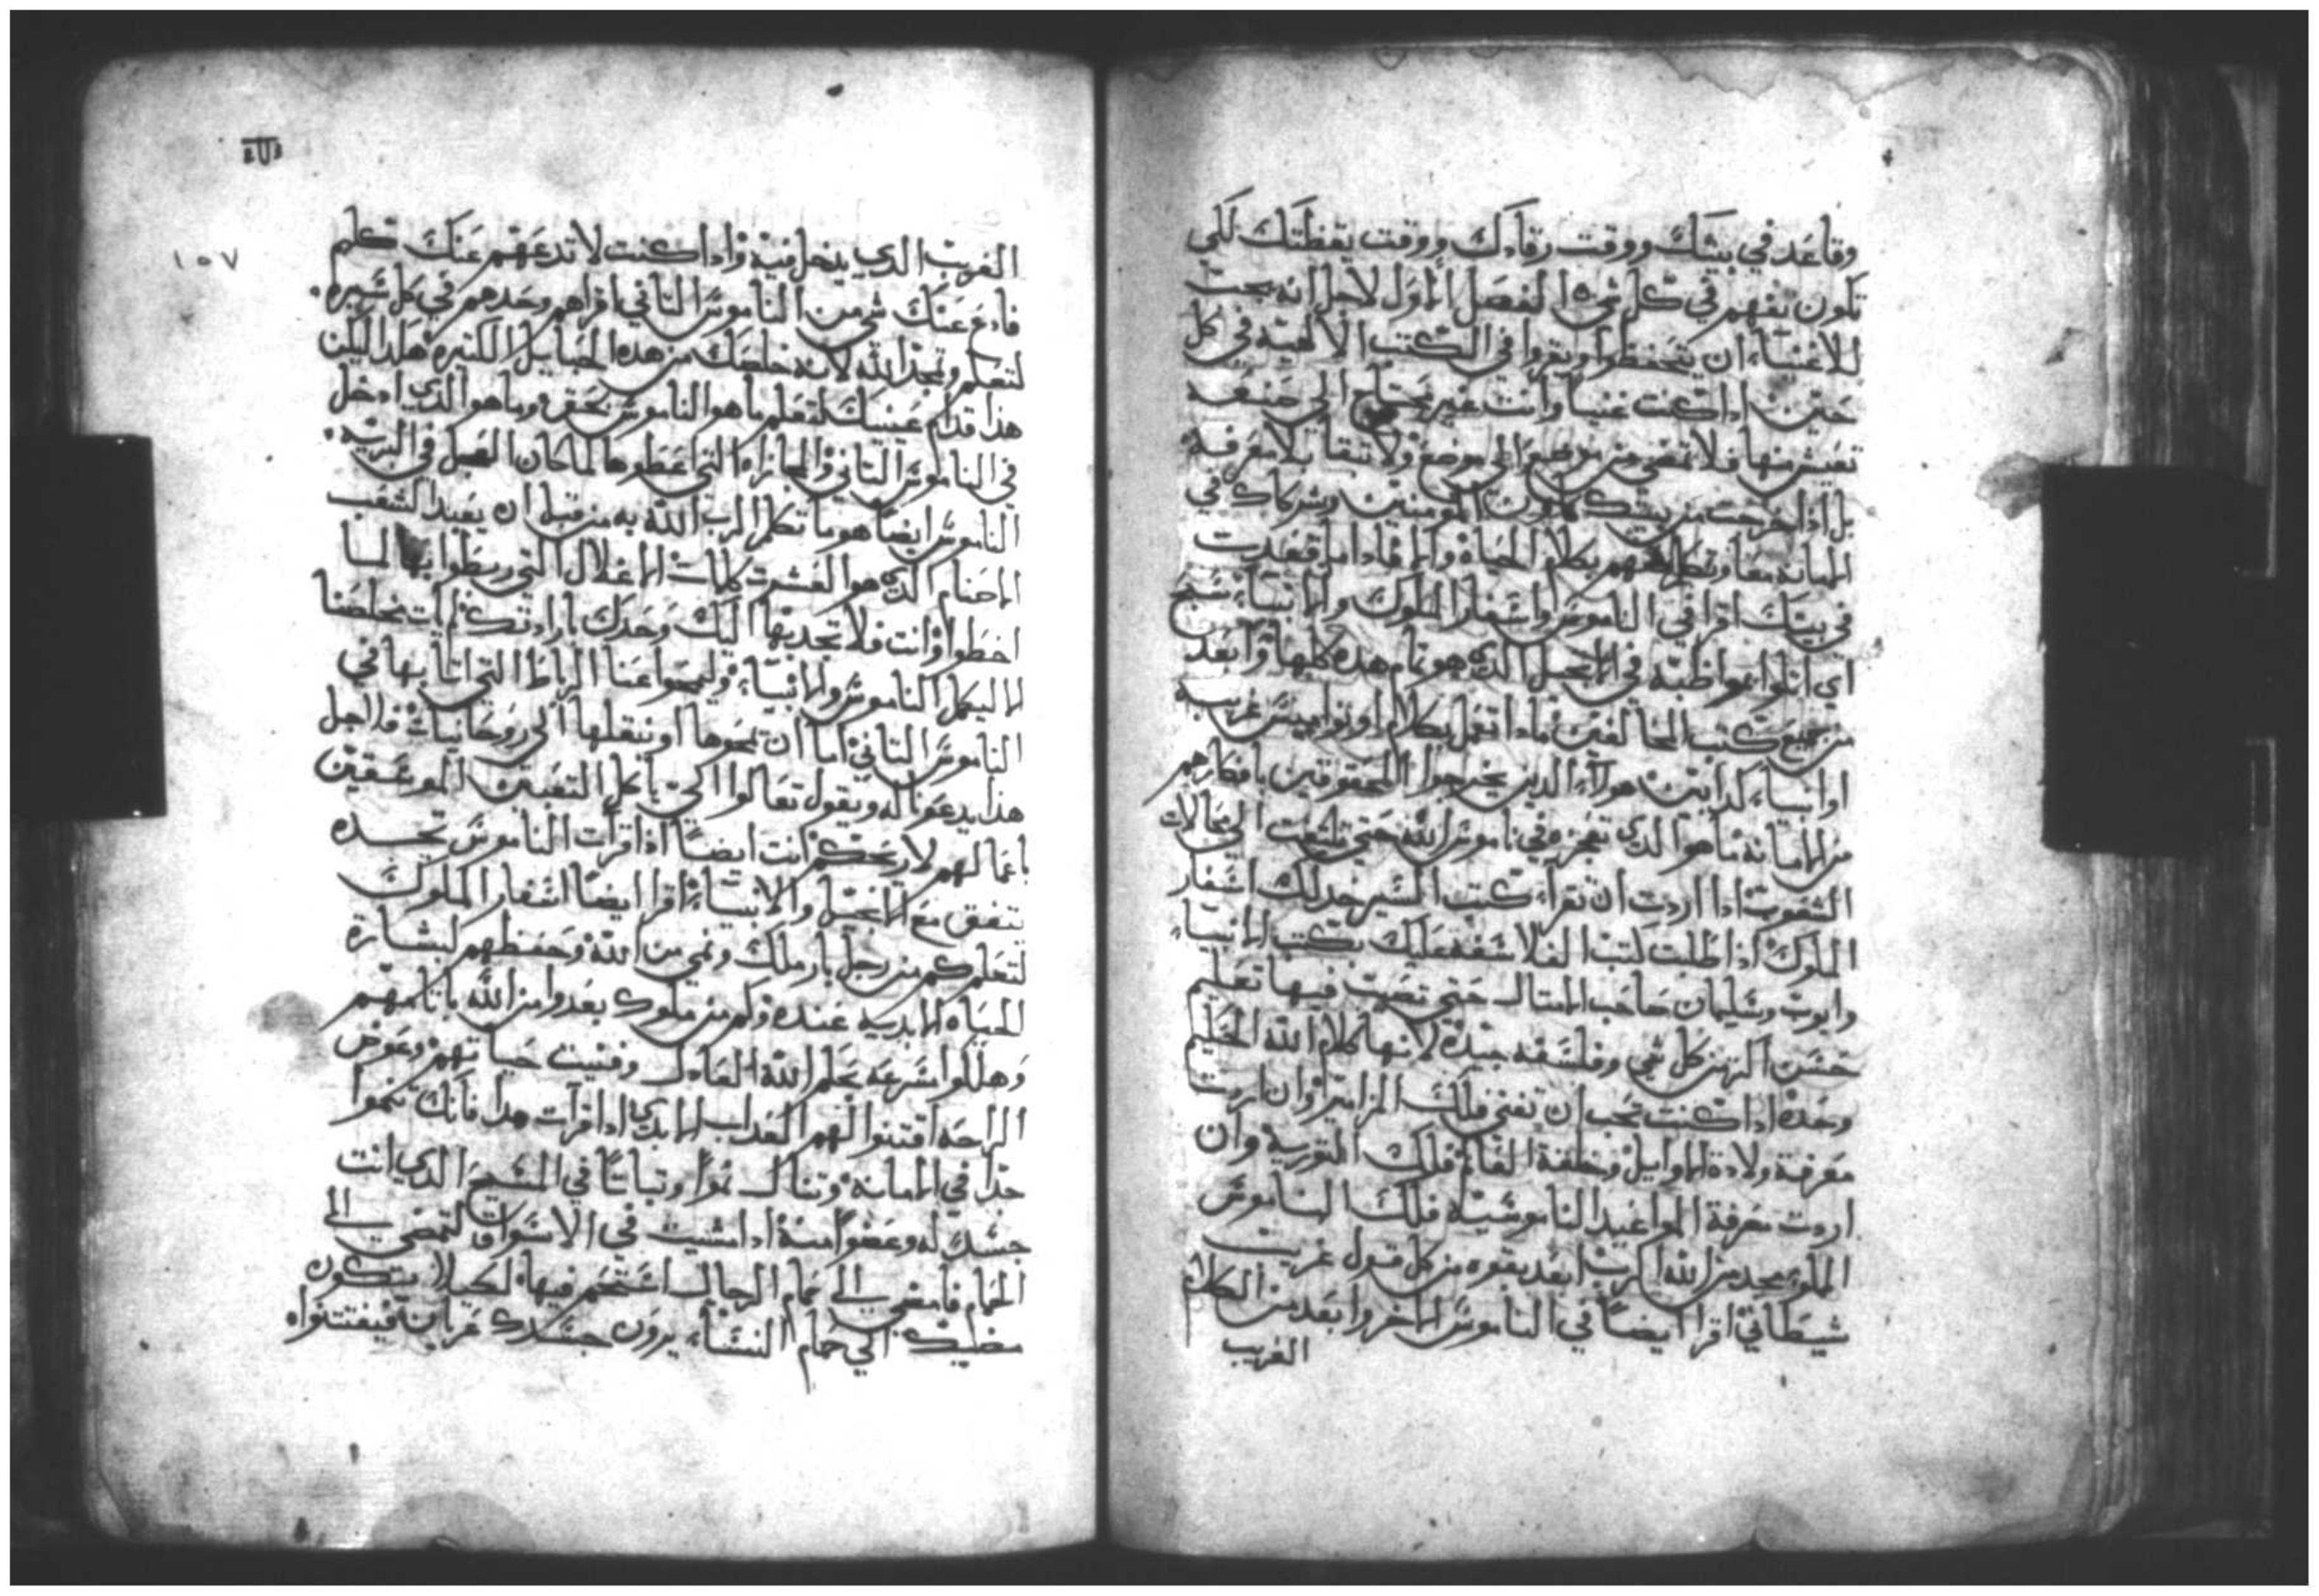 وقاعد في بيتك ووقت رقادك ووقت يقظتك لكي
تكون تفهم في كل شي الفصل الاول لاجل انه يجب
للاغنيا ان يتحفظوا ويقروا في الكتب الالهية في كل
حين اذا كنت غنيا وانت غير محتاج الى صنعه
تعيش منها فلا تمضي من موضع الى موضع ولا تبقا بلا معرفة
بل اذا خرجت من بيتك المومنين وشركاك في
الامانه معا وتكلم معهم بكلام الحياة والا فاذا ما قعدت
في بيتك اقرا في الناموس واسفار الملوك والانبيا سبح
اي اتلوا مواظبة في الانجيل الذي هو تمام هذه كلها وابعد
من جميع كتب المخالفين ماذا تعمل بكلام او نواميس غريبه
او انبياء كدابين هولاء الذين يخرجوا المحقوقين بافكارهم
من الامانه ما هو الذي تعجزه في ناموس الله حتى تلتفت الى محالات
الشعوب اذا اردت ان تقراء كتب السير خد لك اسفار
الملوك اذا طلبت كتب الفلاسفه عليك بكتب الانبياء
وايوب وسليمان صاحب الامثال حتى تصيب فيها تعليم
حسن اكثر من كل شي وفلسفه جيده لانها كلام الله الحكيم
وحده اذا كنت تحب ان تغني فلك المزامير وان اردت
معرفة ولادة الاوايل وخلقة العالم فلك التورية وان
اردت معرفة المواعيد الناموسية فلك الناموس
المملوء مجد من الله الرب ابعد بقوه من كل قول غريب
شيطاني اقرا ايضا في الناموس الاخر وابعد من الكلام
الغريب
١٥٧
الغريب الذي يدخل فيه واذا كنت لا تدعهم عنك كلهم
فادع عنك شي من الناموس الثاني اقراهم وحدهم في كل سيره
لتعلم وتمجد الله لانه خلصك من هذه الحبايل الكثيره هكذا ليكن
هذا قدام عينيك لتعلم ما هو الناموس بحق وما هو الذي ادخل
في الناموس الثاني والمجازاه التي اعطوها لما كان العجل في البريه
الناموس ايضا هو ما تكلم الرب الله به من قبل ان يعبد الشعب
الاصنام الذي هو العشرت كلمات الاغلال التي ربطوا بها لما
اخطوا وانت فلا تجذبها اليك وحدك بارادتك لم يات مخلصنا
الا ليكمل الناموس والانبياء وليمحوا عنا الرباط التي اتا بها في
الناموس الثاني اما ان يمحوها او ينقلها الى روحانيات فلاجل
هذا يدعونا له ويقول تعالوا الي يا كل التعبين الموسقين
باعمالهم لاريحكم انت ايضا اذا قرات الناموس تجده
يتفق مع الانجيل والانبياء اقرا ايضا اسفار الملوك
لتعلم كم من رجل بار ملك ونمي من الله وحفظهم لبشارة
الحياه الابديه عنده وكم من ملوك بعدوا من الله باثامهم
وهلكوا سرعه بحكم الله العادل وفنيت حياتهم وعوض
الراحه اقتنوا لهم العداب الابدي اذا قرات هذا فانك تنموا
جدا في الامانه وتنال نموا وثباتا في المسيح الذي انت
جسد له وعضوا منه اذا مشيت في الاسواق لتمضي الى
الحمام فامضي الى حمام الرجال استحم فيها لكيلا يكون
مضيك الى حمام النساء يرون جسدك عريان فيفتتنوا